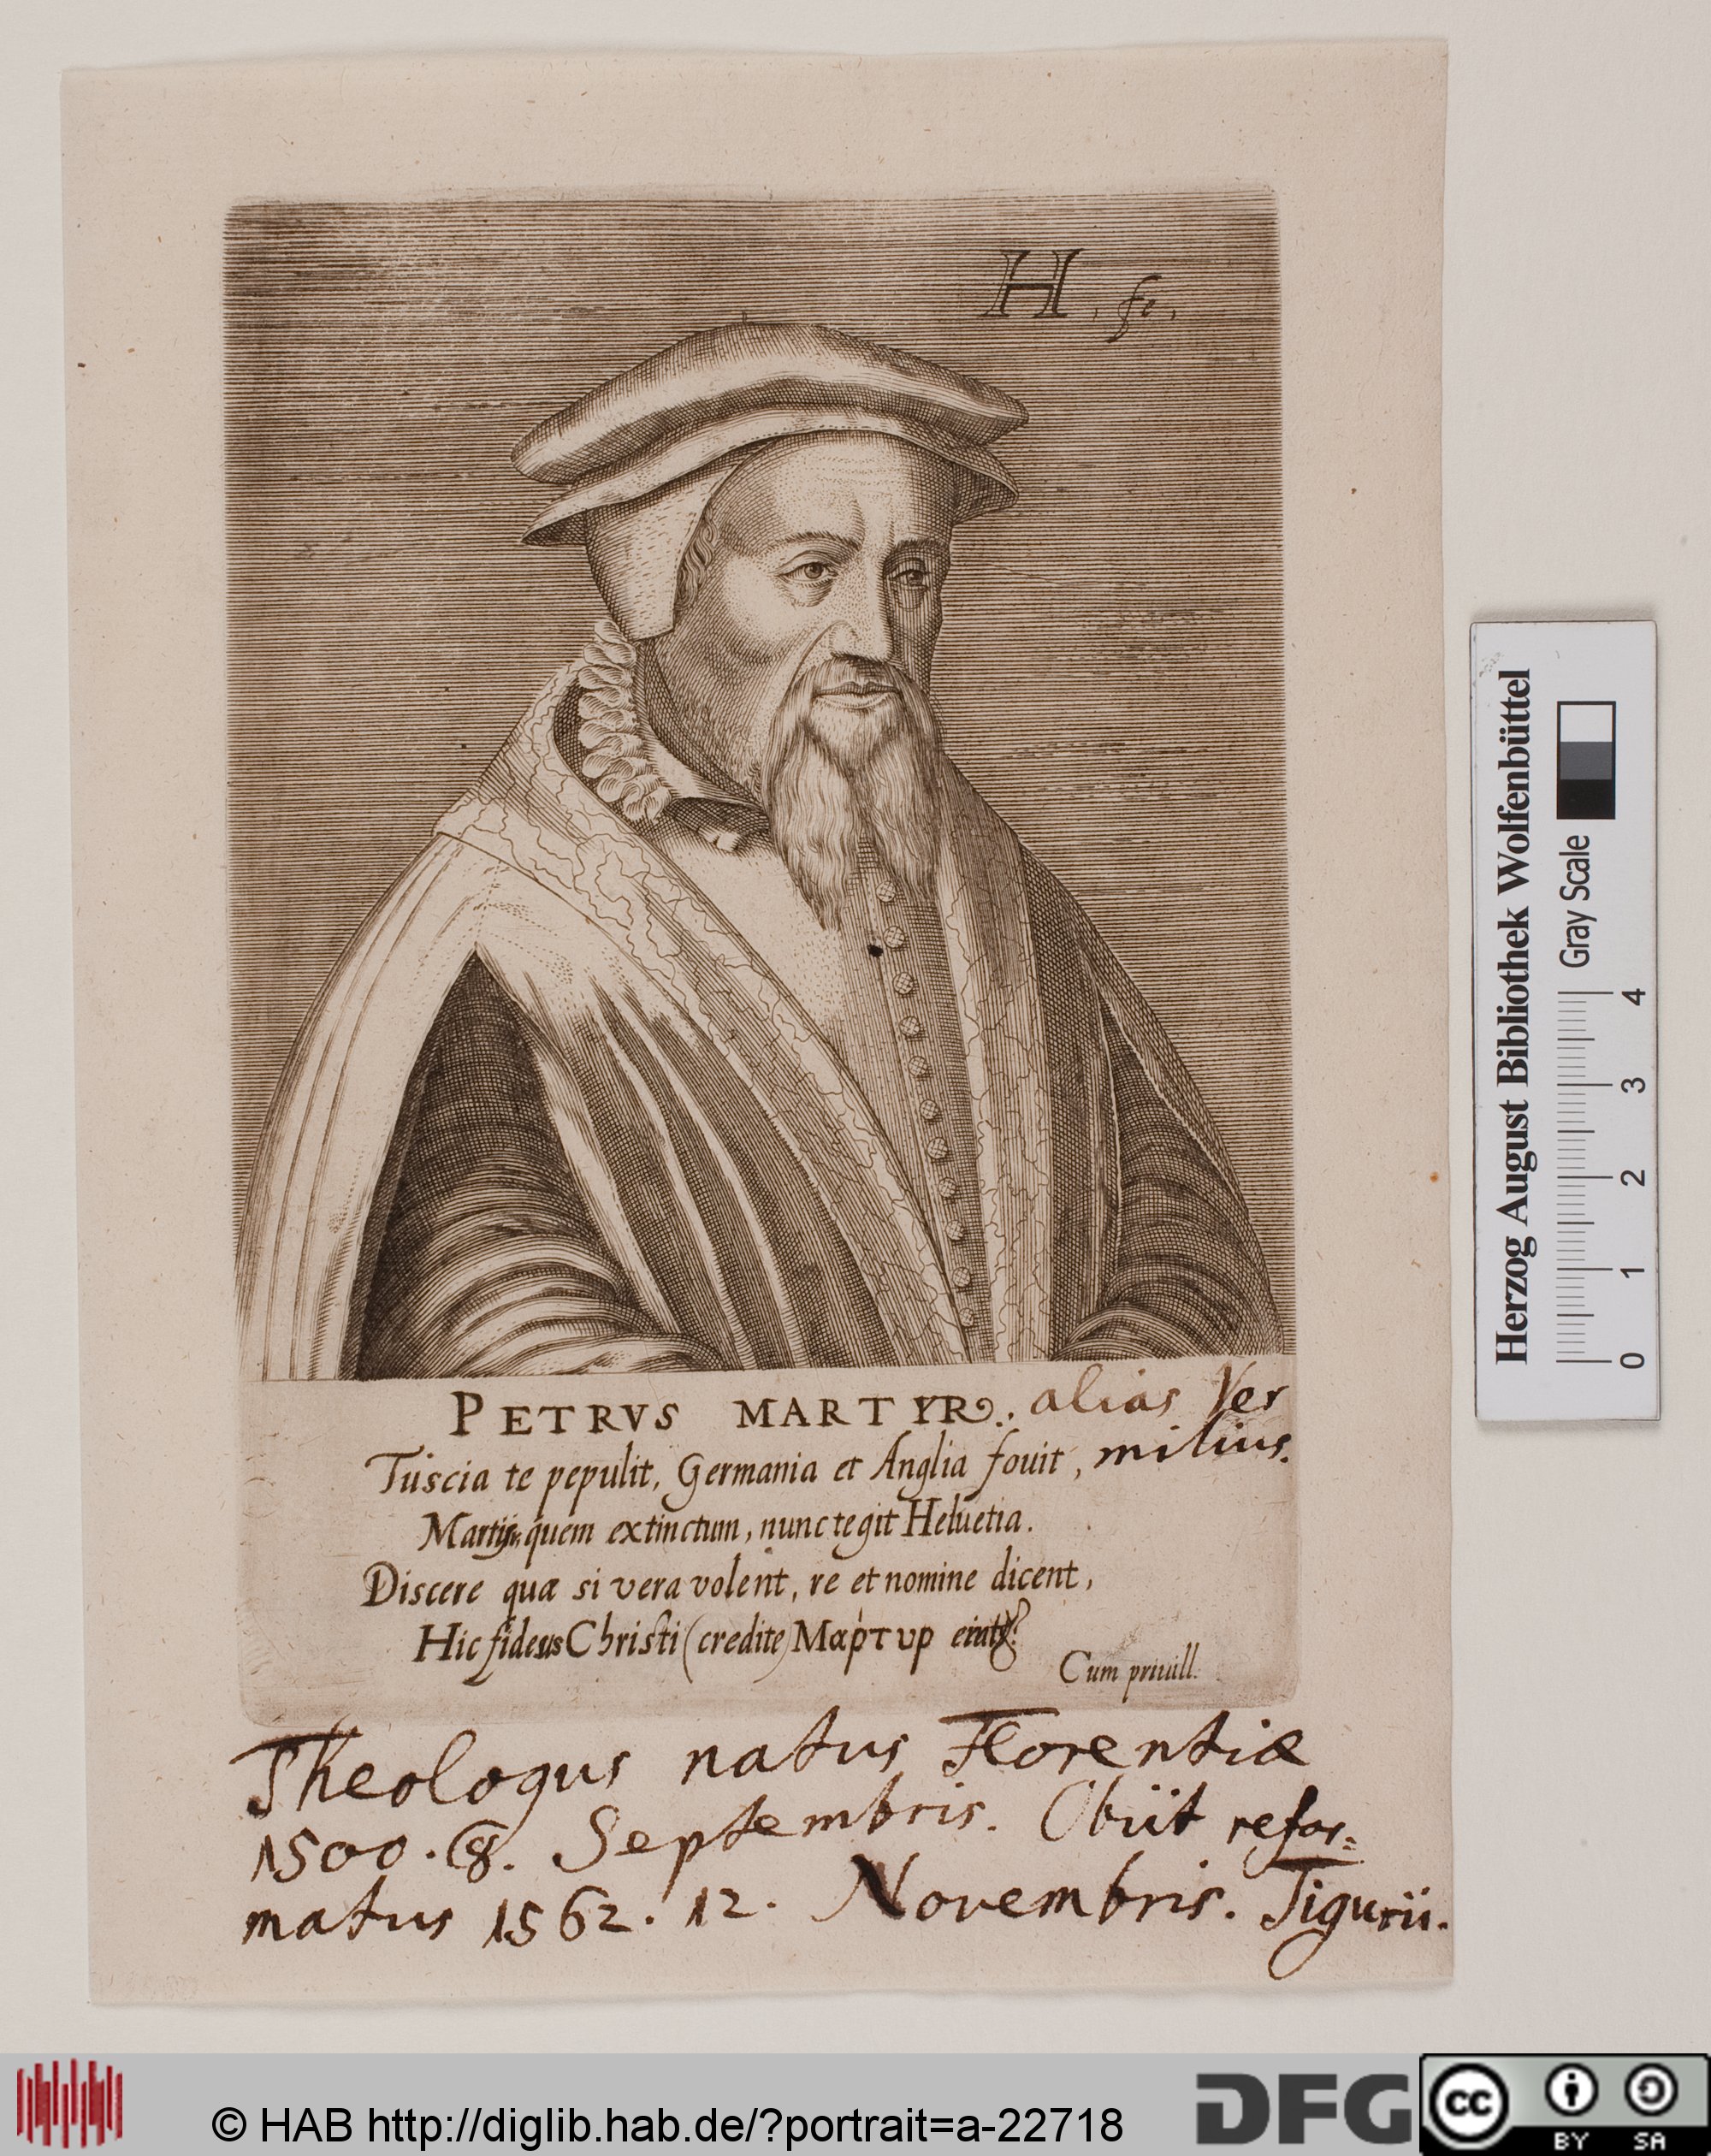 H. fe.
PETRVS MARTYR. alias Ver
milius.
Tuscia te pepulit, Germania et Anglia fouit,
quem extinctum, nunc tegit Heluetia.
Discere quæ si vera volent, re et nomine dicent,
Hic fidus Christi (credite) Μάρτυρ erat.
Cum priuill.
Theologus natus Florentiæ
1500. 8. Septembris. Obiit refor=
matus 1562. 12. Novembris. Tigurii.
Herzog August Bibliothek Wolfenbüttel
Gray Scale
0 1 2 3 4
© HAB http://diglib.hab.de/?portrait=a-22718
DFG
cc BY SA